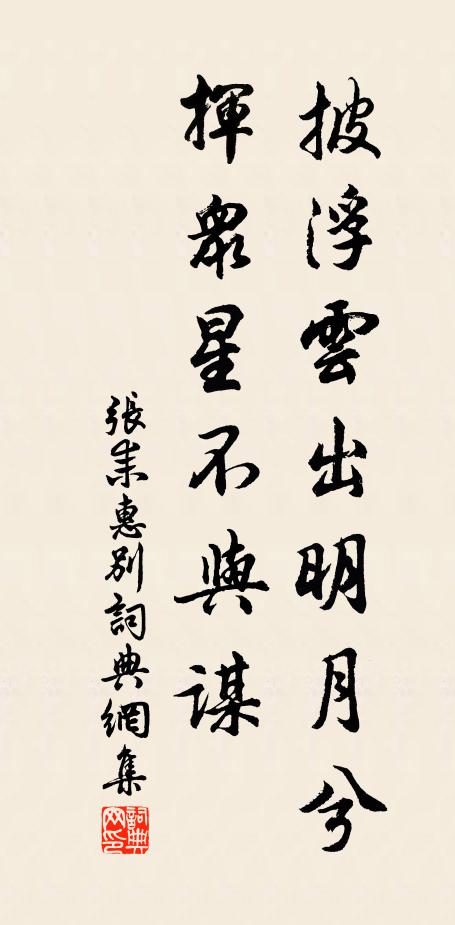 披浮雲出明月兮
揮眾星不與謀
張耒惠別詞典網集
詞典
网印